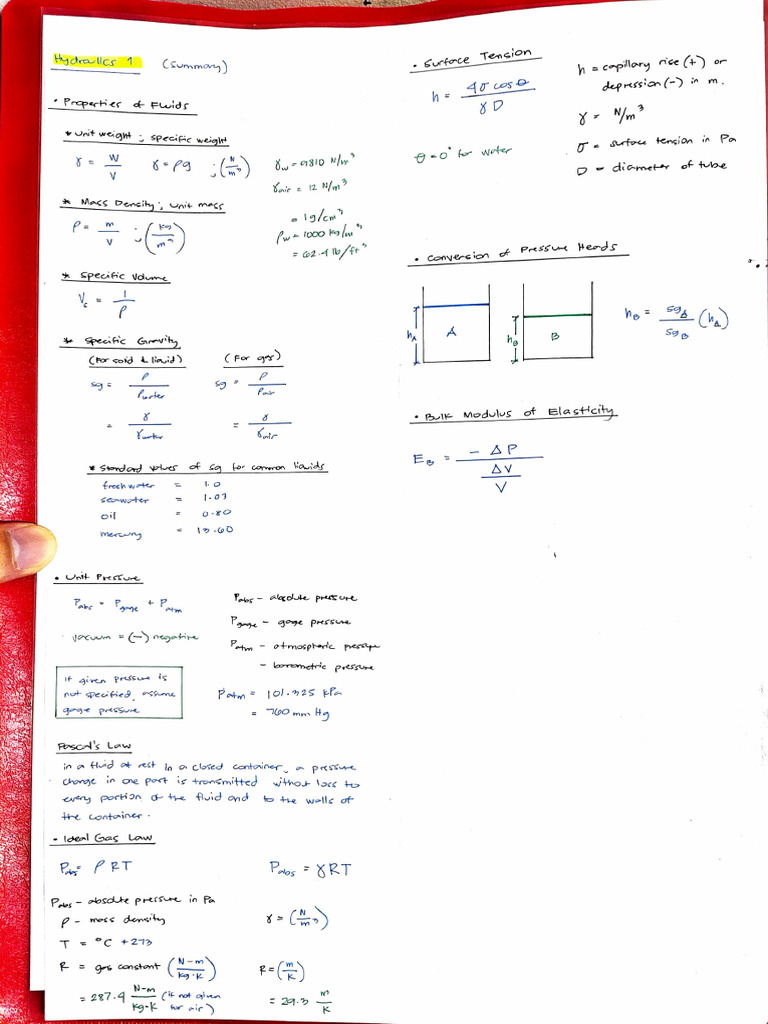 Hydraulics 1 (Summary)
• Properties of Fluids
* Unit weight ; specific weight
γ = W/V γ = ρg ; (N/m³) γw = 9810 N/m³
γair = 12 N/m³
* Mass Density ; Unit mass
ρ = m/V ; (kg/m³)
= 1g/cm³
ρw = 1000 kg/m³
= 62.4 lb/ft³
* Specific Volume
Vs = 1/ρ
* Specific Gravity
(For solid & liquid) (For gas)
sg = ρ/ρwater sg = ρ/ρair
= γ/γwater = γ/γair
* Standard values of sg for common liquids
freshwater = 1.0
seawater = 1.03
oil = 0.80
mercury = 13.60
• Unit Pressure
Pabs = Pgage + Patm
vacuum = (-) negative
Pabs - absolute pressure
Pgage - gage pressure
Patm - atmospheric pressure
- barometric pressure
If given pressure is
not specified, assume
gage pressure
Patm = 101.325 kPa
= 760 mm Hg
Pascal's Law
in a fluid at rest in a closed container, a pressure
change in one part is transmitted without loss to
every portion of the fluid and to the walls of
the container.
• Ideal Gas Law
Pabs = ρRT Pabs = γRT
Pabs - absolute pressure in Pa
ρ - mass density γ = (N/m³)
T = °C + 273
R = gas constant (N-m/kg·K) R = (m/K)
= 287.4 N-m/kg·K (if not given for air) = 29.3 m/K
• Surface Tension
h = 4σ cosθ/γD
θ = 0° for water
h = capillary rise (+) or
depression (-) in m.
γ = N/m³
σ = surface tension in Pa
D = diameter of tube
• Conversion of Pressure Heads
hA A hB B hB = sgA/sgB (hA)
• Bulk Modulus of Elasticity
EB = -ΔP/(ΔV/V)